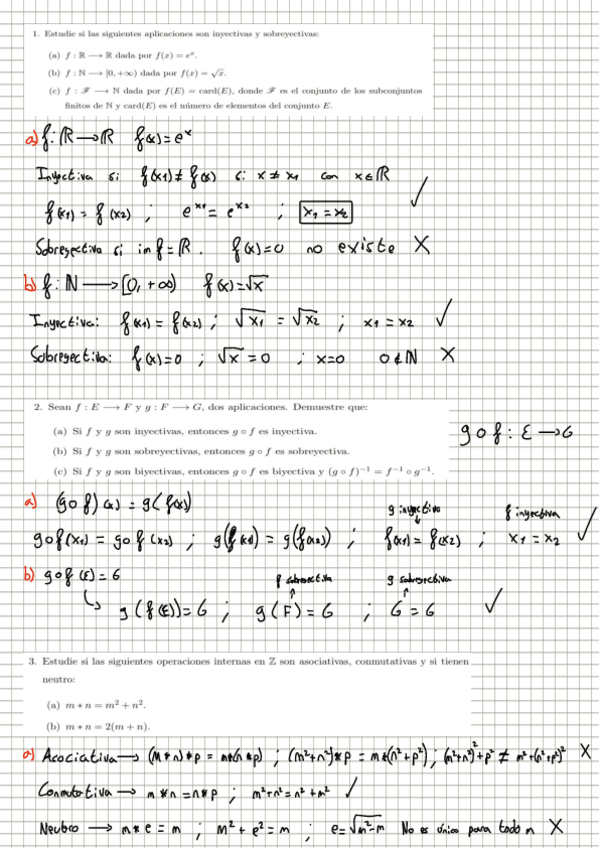 1. Estudie si las siguientes aplicaciones son inyectivas y sobreyectivas:
(a) f : ℝ ⟶ ℝ dada por f(x) = eˣ.
(b) f : ℕ ⟶ [0, +∞) dada por f(x) = √x.
(c) f : ℱ ⟶ ℕ dada por f(E) = card(E), donde ℱ es el conjunto de los subconjuntos
finitos de ℕ y card(E) es el número de elementos del conjunto E.
a) f: ℝ → ℝ f(x) = eˣ
Inyectiva si f(x₁) ≠ f(x) si x ≠ x₁ con x ∈ ℝ
f(x₁) = f(x₂) ; eˣ¹ = eˣ² ; x₁ = x₂ ✓
Sobreyectiva si im f = ℝ. f(x) = 0 no existe X
b) f: ℕ ⟶ [0, +∞) f(x) = √x
Inyectiva: f(x₁) = f(x₂) ; √x₁ = √x₂ ; x₁ = x₂ ✓
Sobreyectiva: f(x) = 0 ; √x = 0 ; x = 0 0 ∉ ℕ X
2. Sean f : E ⟶ F y g : F ⟶ G, dos aplicaciones. Demuestre que:
(a) Si f y g son inyectivas, entonces g ∘ f es inyectiva.
(b) Si f y g son sobreyectivas, entonces g ∘ f es sobreyectiva.
(c) Si f y g son biyectivas, entonces g ∘ f es biyectiva y (g ∘ f)⁻¹ = f⁻¹ ∘ g⁻¹.
g o f : E → G
a) (g o f)(x) = g(f(x))
g inyectiva f inyectiva
g o f(x₁) = g o f(x₂) ; g(f(x₁)) = g(f(x₂)) ; f(x₁) = f(x₂) ; x₁ = x₂ ✓
b) g o f (E) = G
f sobreyectiva g sobreyectiva
↳ g(f(E)) = G ; g(F) = G ; G = G ✓
3. Estudie si las siguientes operaciones internas en ℤ son asociativas, conmutativas y si tienen
neutro:
(a) m ∗ n = m² + n².
(b) m ∗ n = 2(m + n).
a) Acociativa → (m * n) * p = m*(n * p) ; (m²+n²)*p = m*(n²+p²) ; (m²+n²)²+p² ≠ m²+(n²+p²)² X
Conmutativa → m * n = n * p ; m²+n² = n²+m² ✓
Neutro → m * e = m ; m² + e² = m ; e = √m²-m No es único para todo n X